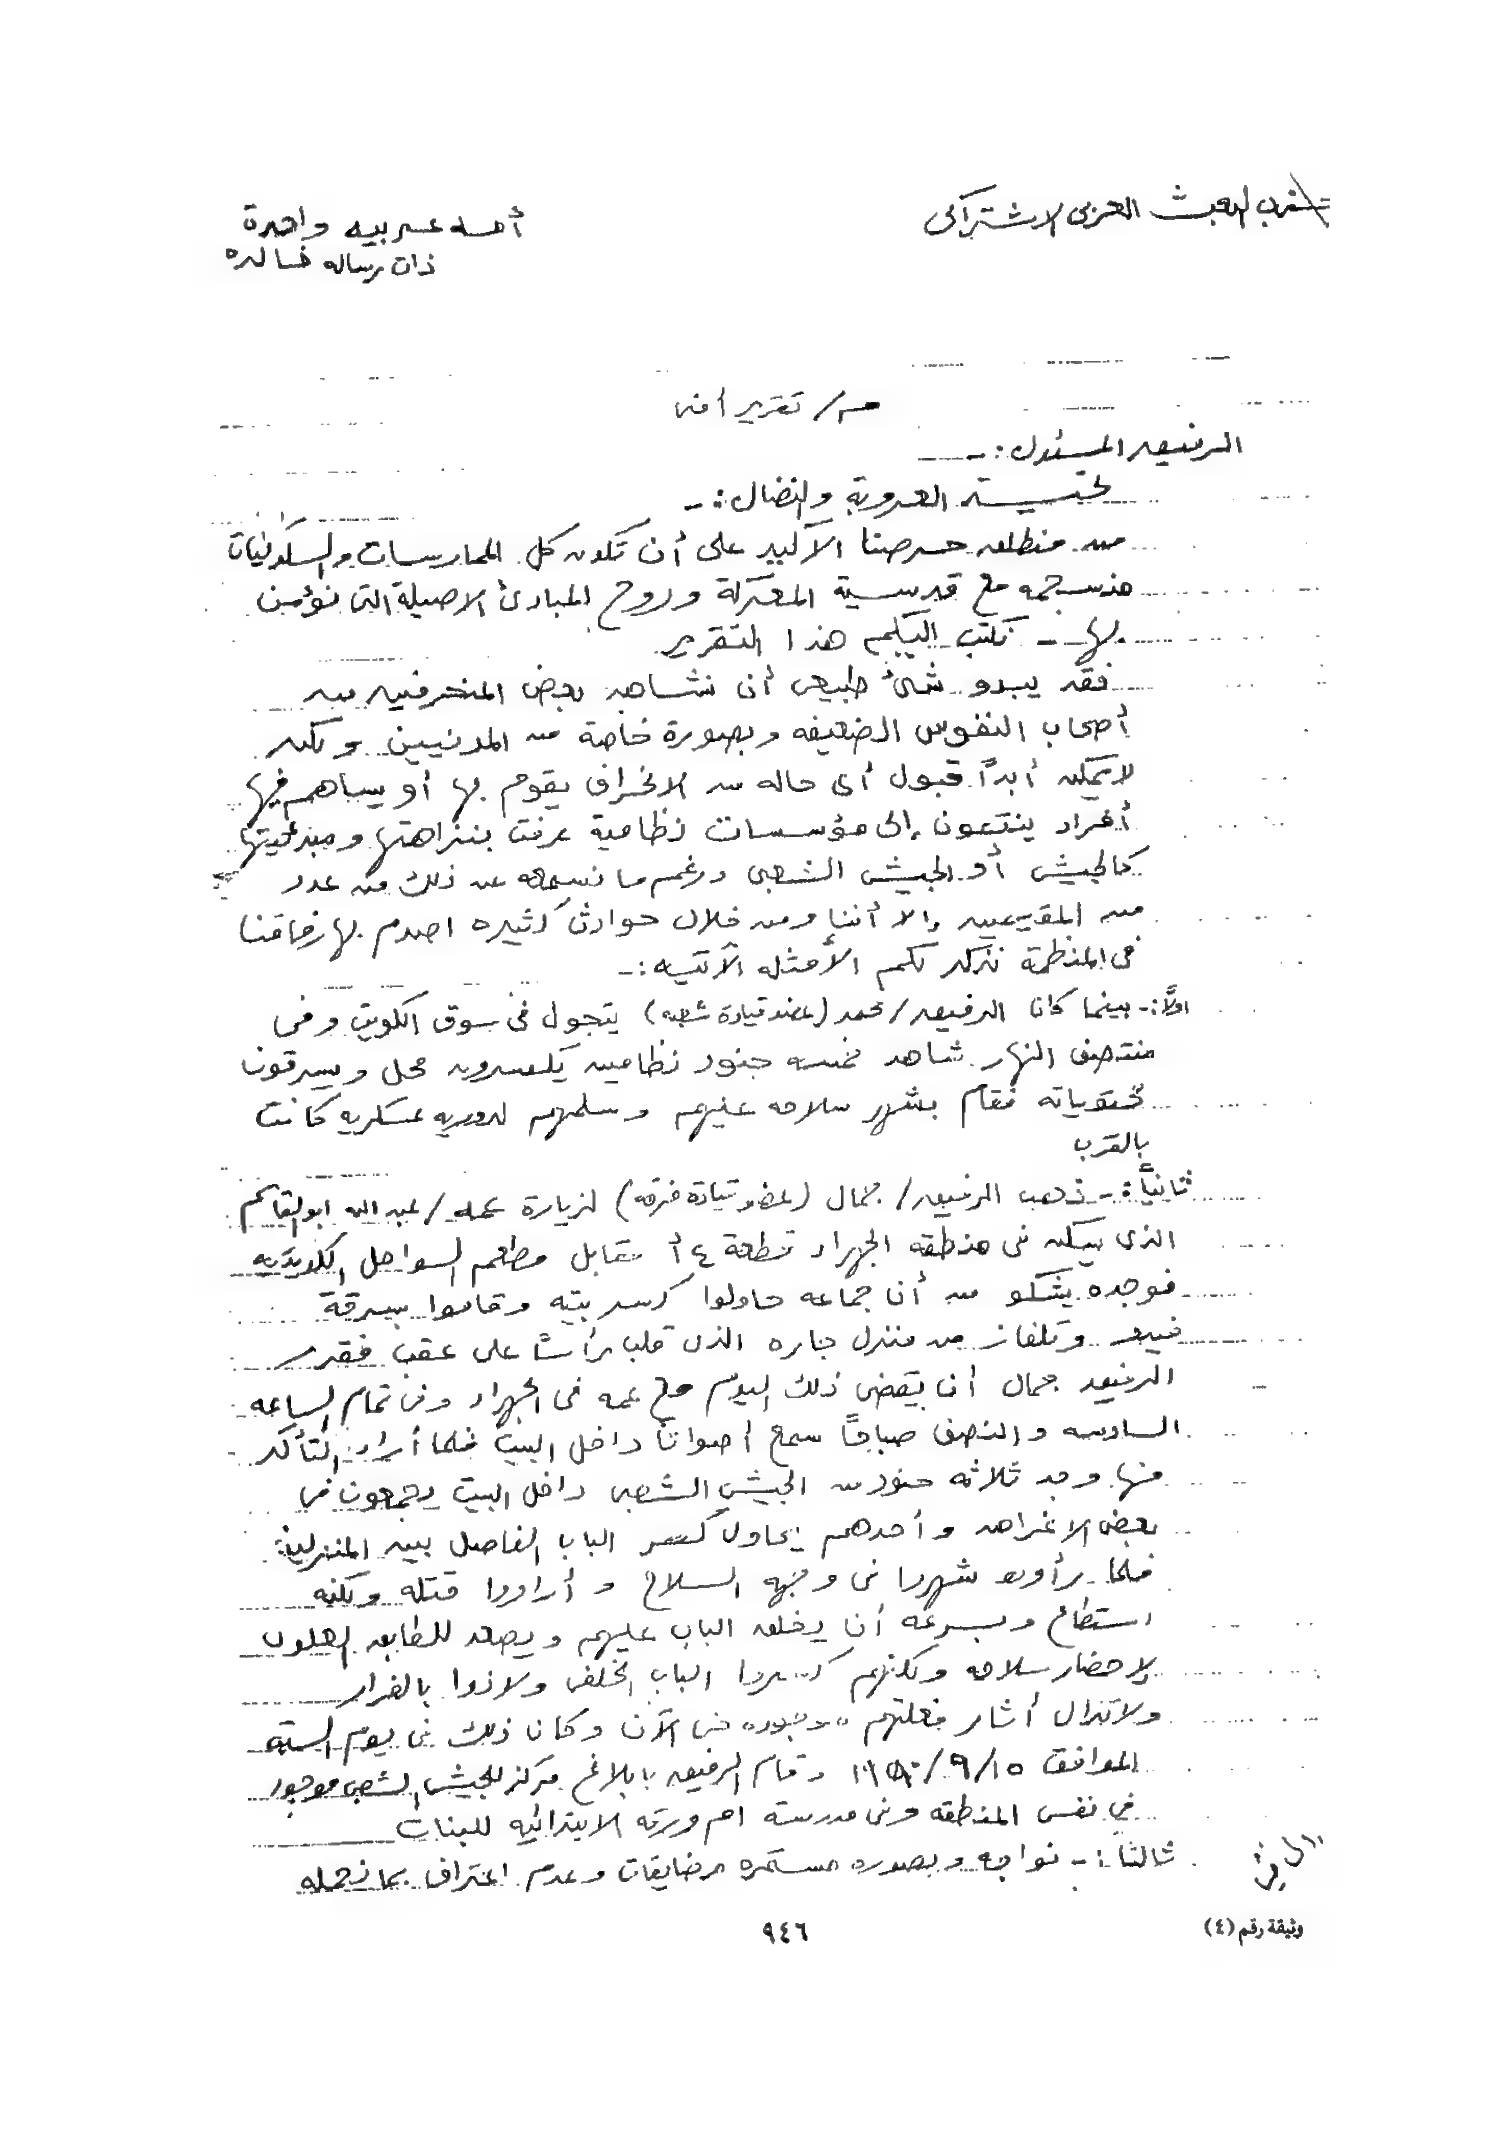 حزب البعث العربي الاشتراكي
أمه عربيه واحدة
ذات رساله خالده
م/ تقرير أمني
الرفيق المسئول :-
تحيـــة العروبة والنضال :-
من منطلق حرصنا الأكيد على أن تكون كل الممارسات والسلوكيات
منسجمه مع قدسية المعركة وروح المبادئ الاصيلة التي نؤمن
بها - نكتب اليكم هذا التقرير
فقد يبدو شئ طبيعي أن نشاهد بعض المنحرفين من
أصحاب النفوس الضعيفه وبصورة خاصة من المدنيين ولكن
لا يمكن أبداً قبول أي حاله من الانحراف يقوم بها أو يساهم فيها
أفراد ينتمون إلى مؤسسات نظامية عرفت بنزاهتها ومبدئيتها
كالجيش أو الجيش الشعبي ورغم ما نسمعه عن ذلك من عدد
من المقيمين إلا أننا ومن خلال حوادث كثيره اصدم بها رفاقنا
في المنظمة نذكر لكم الأمثله الآتيه :-
اولاً :- بينما كان الرفيق / محمد (عضو قيادة شعبه) يتجول في سوق الكويت وفي
منتصف النهار شاهد خمسه جنود نظاميين يكسرون محل ويسرقون
محتوياته فقام بشهر سلاحه عليهم وسلمهم لدوريه عسكريه كانت
بالقرب
ثانياً :- ذهب الرفيق / جمال (عضو قيادة فرقه) لزيارة عمه / عبد الله ابو القاسم
الذي يسكن في منطقه الجهراء قطعة ٤ أ مقابل مطعم السواحل الكويتيه
فوجده يشكو من أن جماعه حاولوا كسر بيته وقاموا بسرقة
فيديو وتلفاز من منزل جاره الذي قلب رأساً على عقب فقرر
الرفيق جمال أن يقضي ذلك اليوم مع عمه في الجهراء وفي تمام الساعه
السادسه والنصف صباحاً سمع أصواتاً داخل البيت فلما أراد التأكد
منها وجد ثلاثه جنود من الجيش الشعبي داخل البيت يجمعون في
بعض الاغراض وأحدهم يحاول كسر الباب الفاصل بين المنزلين
فلما رأوه شهروا في وجهه السلاح و أرادوا قتله ولكنه
استطاع وبسرعه أن يغلق الباب عليهم ويصعد للطابق العلوي
لإحضار سلاحه ولكنهم كسروا الباب الخلفي ولاذوا بالفرار
ولا تزال أثار فعلتهم موجوده حتى الآن وكان ذلك في يوم السبت
الموافق ١٩٩٠/٩/١٥ وقام الرفيق بابلاغ مركز للجيش الشعبي موجود
في نفس المنطقه وفي مدرسة ام ورقه الابتدائيه للبنات
ثالثاً :- نواجه وبصوره مستمره مضايقات وعدم اعتراف بما نحمله
وثيقة رقم (٤)
٩٤٦